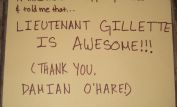 & told me that...
LIEUTENANT GILLETTE
IS AWESOME!!!
(THANK YOU,
DAMIAN O'HARE)